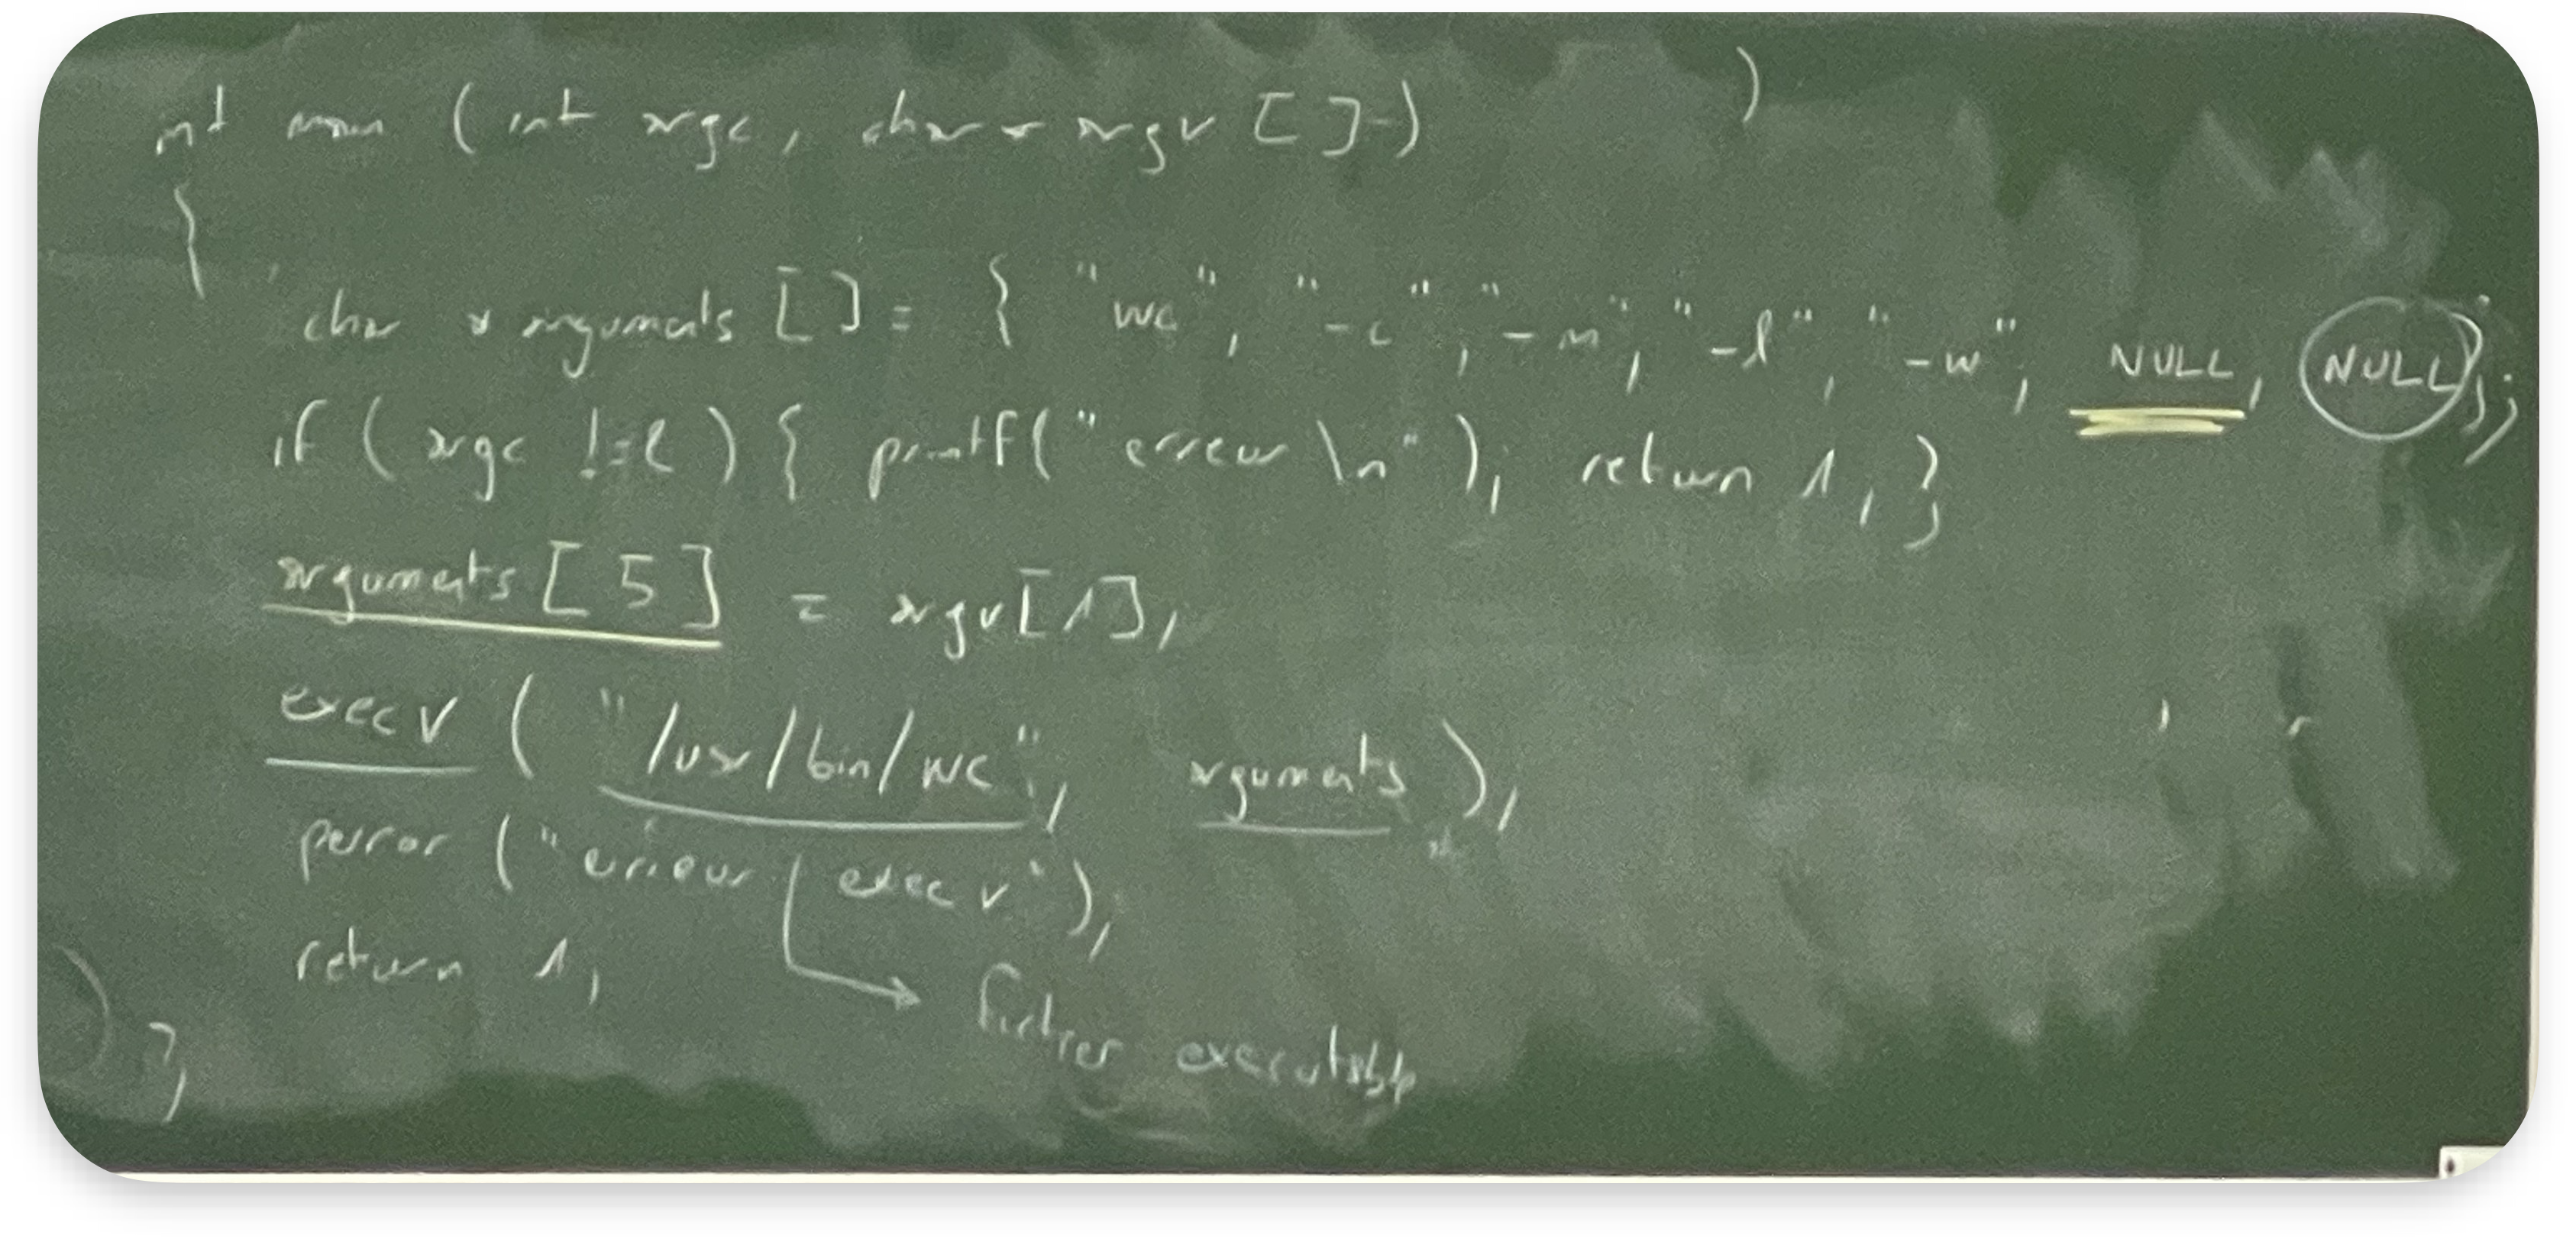 int main (int argc, char * argv [ ] )            )
{
char * arguments [ ] = { "wc", "-c", "-m", "-l", "-w", NULL, NULL };
if ( argc != 2 ) { printf(" erreur \n" ); return 1; }
arguments [ 5 ] = argv[1];
execv ( "/usr/bin/wc", arguments );
perror ("erreur execv");
return 1;
fichier executable
}